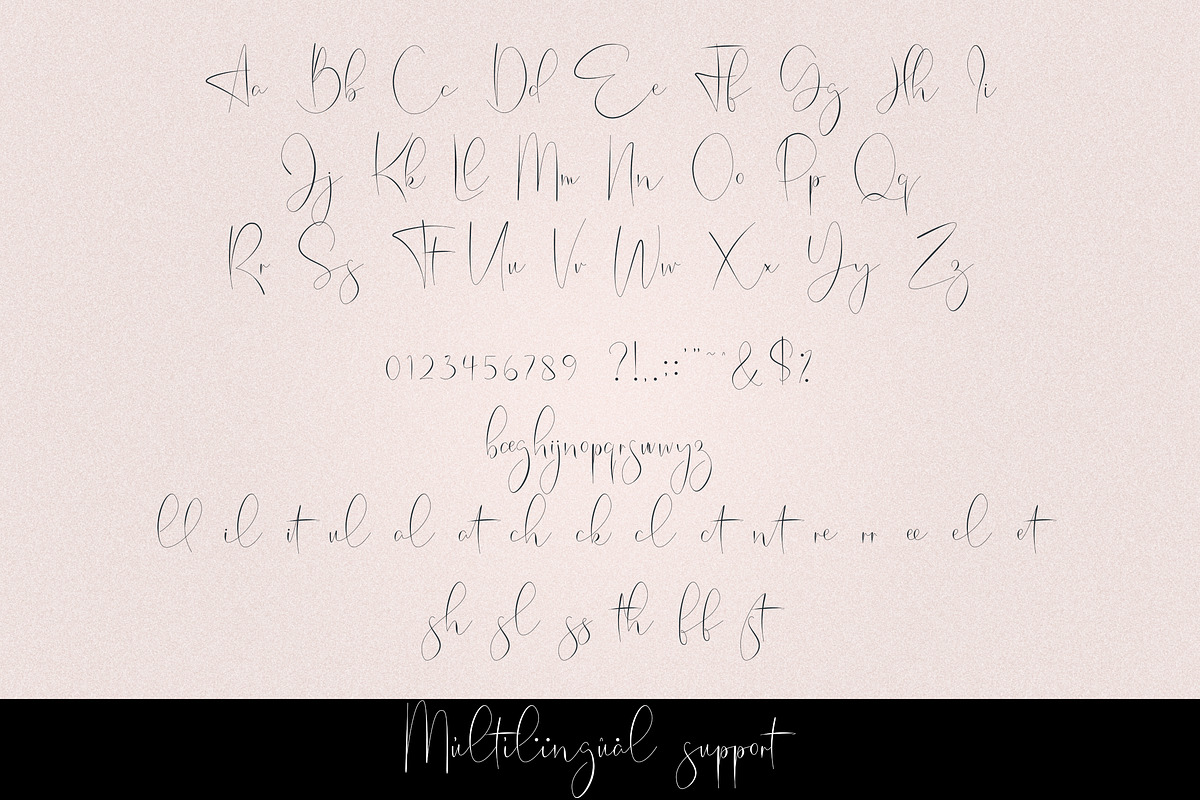 Aa Bb Cc Dd Ee Ff Gg Hh Ii
Jj Kk Ll Mm Nn Oo Pp Qq
Rr Ss Tt Uu Vv Ww Xx Yy Zz
0123456789 ?!,.:;'"~^&$%
ll il it ul al at ch ck cl ct nt re rr ee el et
sh sl ss th ff st
Mùltilïïngûäl support